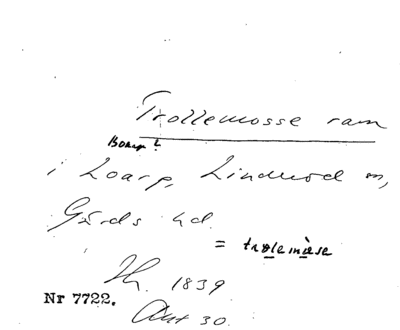 Trollemosse ram
Bonarp?
i Loarp, Linderöd sn,
Gärds hd.
= trolemåse
1839
Nr 7722.
Akt 30.